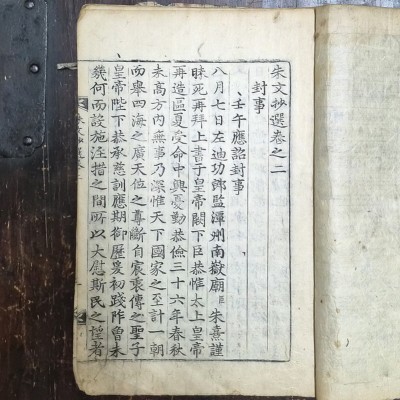 朱文抄選卷之二
封事
壬午應詔封事
八月七日左迪功郎監潭州南嶽廟臣朱熹謹
昧死再拜上書于皇帝闕下臣恭惟太上皇帝
再造區夏受命中興憂勤恭儉三十六年春秋
未高方內無事乃深惟天下國家之至計一朝
而擧四海之廣天位之尊斷自宸衷傳之聖子
皇帝陛下恭承慈訓應期御歷爰初踐阼曾未
幾何而設施注措之間所以大慰斯民之望者
朱文抄選卷二